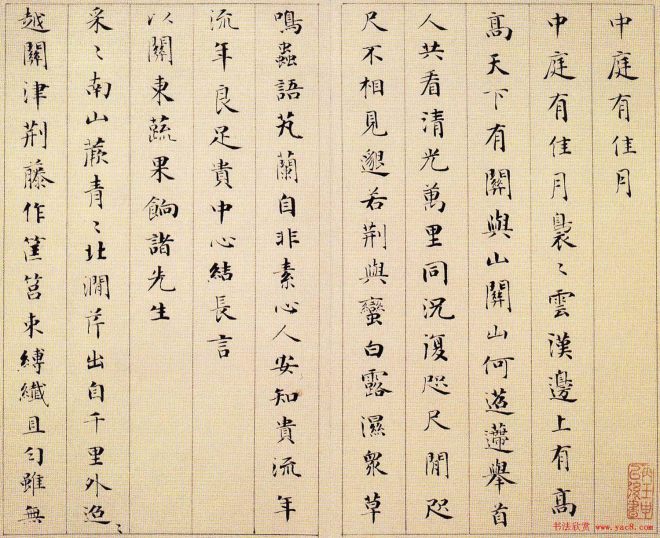 中庭有佳月
中庭有佳月裊〻雲漢邊上有高
高天下有關與山關山何迢遰舉首
人共看清光萬里同況復咫尺間咫
尺不相見邈若荆與蠻白露濕衆草
鳴蟲語芄蘭自非素心人安知貴流年
流年良足貴中心結長言
以關東蔬果餉諸先生
采〻南山蕨青〻北澗芹出自千里外迢〻
越關津荆藤作筐筥束縛纖且勻雖無
书法欣赏
www.yac8.com